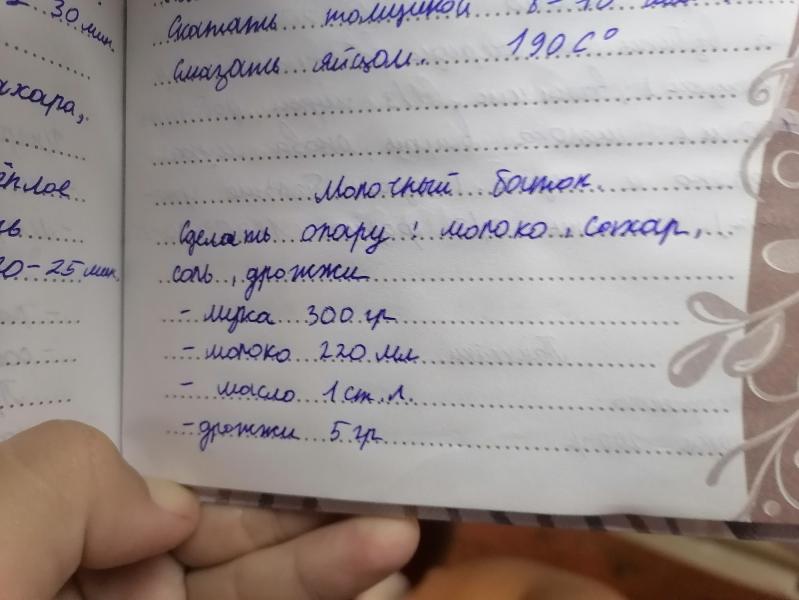 30 мин.
сахара,
тёплое
20-25 мин.
Скатать толщиной 8-10 мм.
Смазать яйцом. 190 С°
Молочный батон.
Сделать опару: молоко, сахар,
соль, дрожжи
- мука 300 гр
- молоко 220 мл
- масло 1 ст.л.
- дрожжи 5 гр